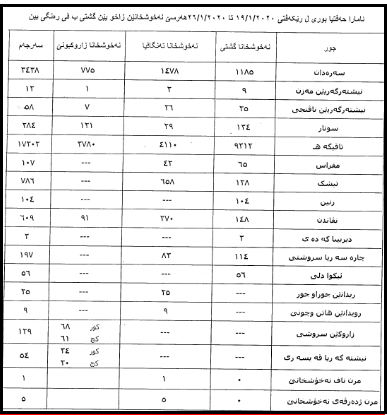 ئامارا حەفتیا بوری ل رێکەفتی ١٩/١/٢٠٢٠ تا ٢٦/١/٢٠٢٠ هەرسێ نەخوشخانێن زاخو یێن گشتی ب ڤی رەنگی بین
جور نەخوشخانا گشتی نەخوشخانا تەنگاڤیا نەخوشخانا زاروکبونی سەرجەم
سەرەدان ١١٨٥ ١٤٧٨ ٧٧٥ ٣٤٣٨
نیشتەرگەریێن مەزن ٩ ٣ ١ ١٣
نیشتەرگەریێن ناڤنجی ٢٥ ٢٦ ٧ ٥٨
سونار ١٢٤ ٢٩ ١٣١ ٢٨٤
تاقیگە هـ ٩٣١٢ ٤١١٠ ٣٧٨٠ ١٧٢٠٢
مفراس ٦٥ ٤٢ --- ١٠٧
تیشک ١٢٨ ٦٥٨ --- ٧٨٦
رنین ١٠٤ --- --- ١٠٤
نڤاندن ١٤٨ ٣٧٠ ٩١ ٦٠٩
دیربینا گە دە ی ٣ --- --- ٣
چارە سە ریا سروشتی ١١٤ ٨٣ --- ١٩٧
ئیکوا دلی ٥٦ --- --- ٥٦
رێدانێن جوراو جور --- ٢٥ --- ٢٥
رویدانێن هاتن وچونێ --- ٩ --- ٩
زاروکێن سروشتی --- --- کور ٦٨ ١٢٩
کچ ٦١
نیشتە گە ریا قە یسە ری --- --- کور ٣٤ ٥٤
کچ ٢٠
مرن ناڤ نەخوشخانێ ٠ ١ ١
مرن ژدەرڤەی نەخوشخانێ ٠ ٥ ٥